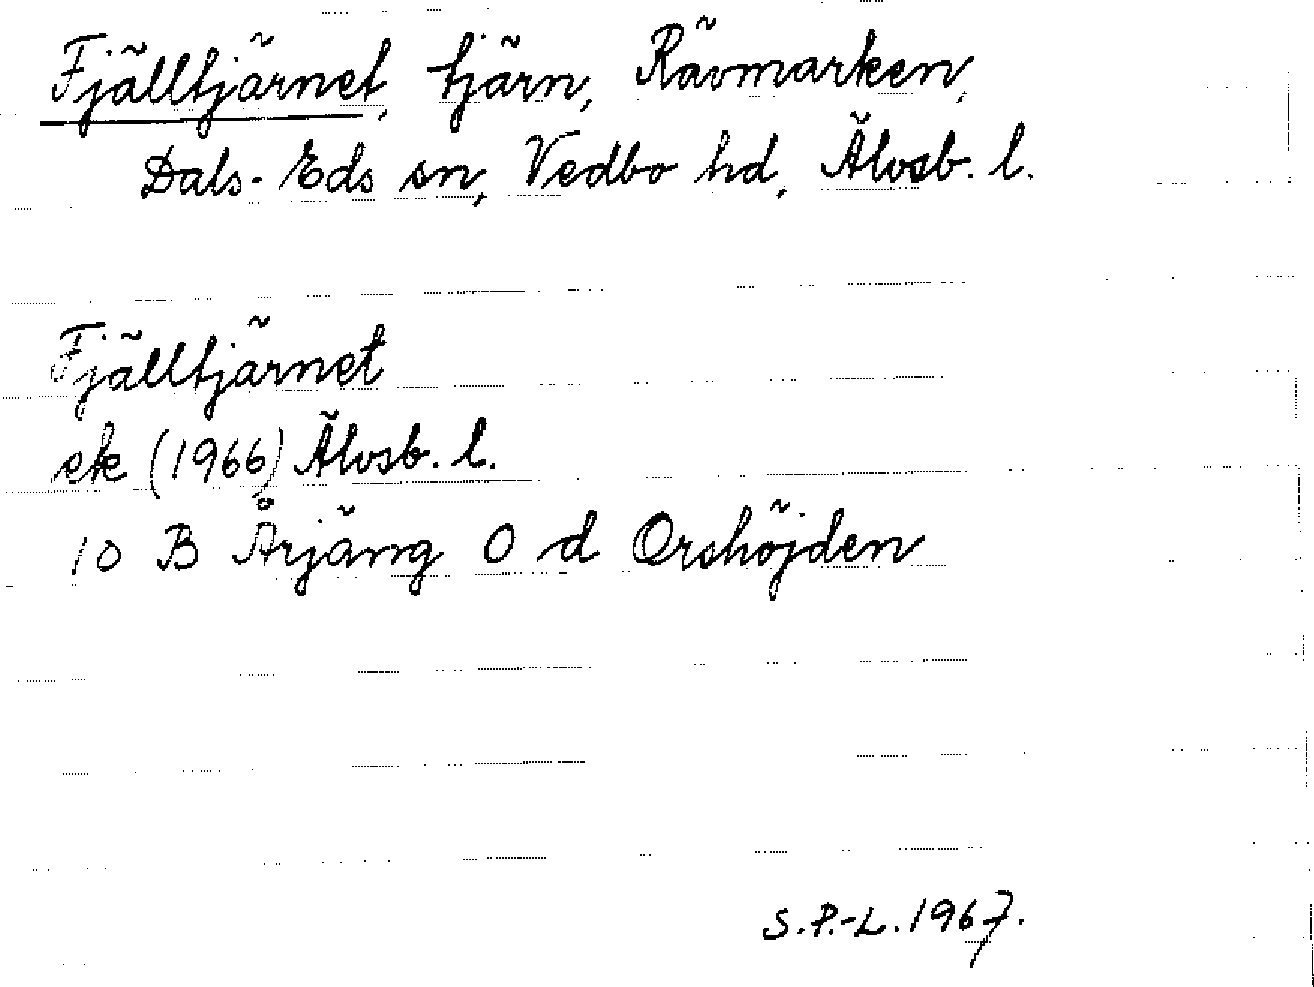 Fjälltjärnet, tjärn, Rävmarken,
Dals-Eds sn, Vedbo hd, Älvsb. l.
Fjälltjärnet
ek (1966) Älvsb. l.
10 B Årjäng 0 d Orshöjden
S.P.-L. 1967.